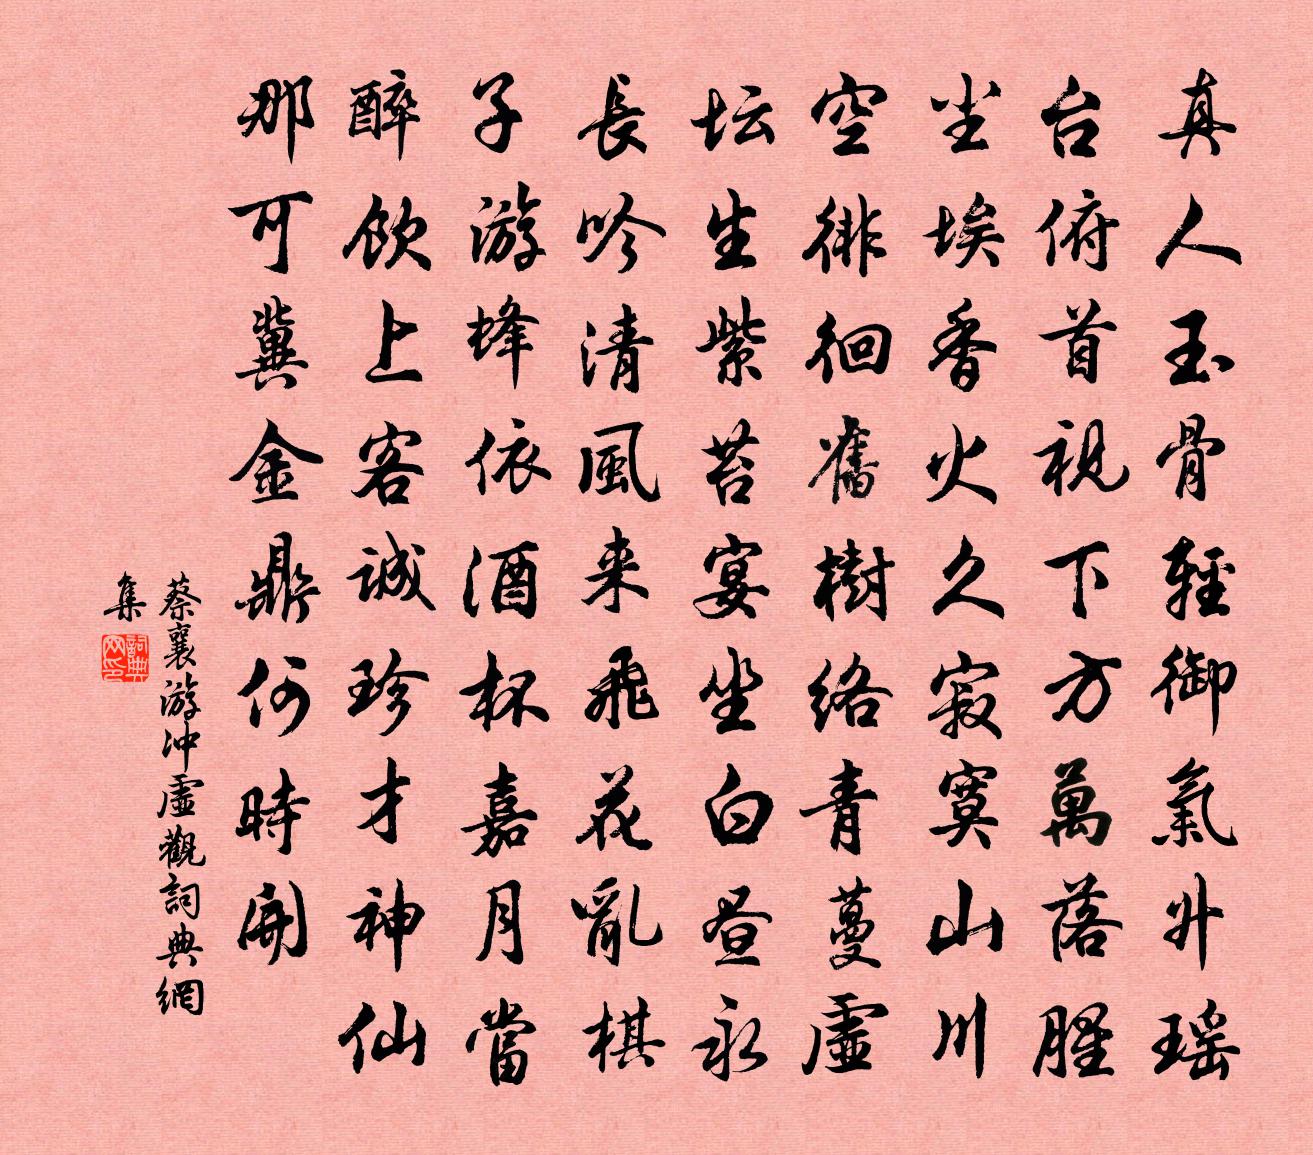 真人玉骨輕御氣升瑶
台俯首視下方萬落腥
尘埃香火久寂寞山川
空徘徊舊樹絡青蔓虛
坛生紫苔宴坐白昼永
長吟清風来飛花亂棋
子游蜂依酒杯嘉月當
醉飲上客誠珍才神仙
那可冀金鼎何時開
蔡襄游冲虛觀詞典網
集